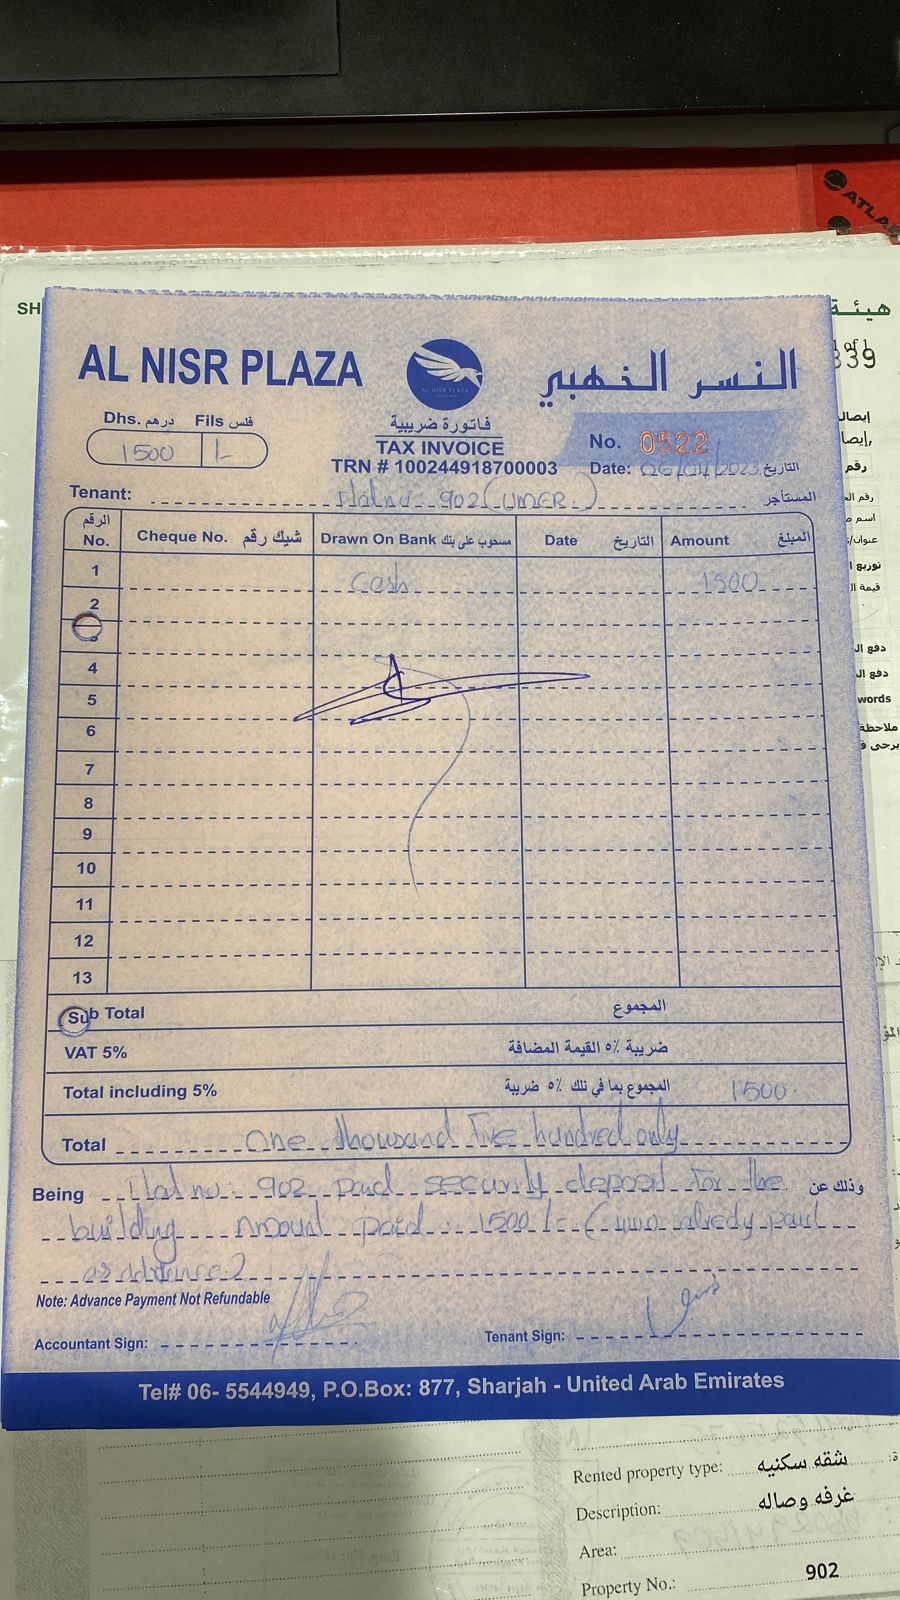 ATLAS
SH
هيئة
1 of 1
339
AL NISR PLAZA
النسر الذهبي
AL NISR PLAZA
Dhs. درهم Fils فلس
1500 /-
فاتورة ضريبية
TAX INVOICE
TRN # 100244918700003
No. 0522
Date: 06/04/2023 التاريخ
Tenant: Flat no: 902 (UMER) المستأجر
الرقم No. Cheque No. شيك رقم Drawn On Bank مسحوب على بنك Date التاريخ Amount المبلغ
1 Cash 1500
2
3
4
5
6
7
8
9
10
11
12
13
Sub Total المجموع
VAT 5% ضريبة ٥% القيمة المضافة
Total including 5% المجموع بما في ذلك ٥% ضريبة 1500
Total One thousand five hundred only
Being Flat no: 902 paid security deposit for the وذلك عن
building Amount paid: 1500/- (two alredy paid
as advance)
Note: Advance Payment Not Refundable
Accountant Sign:
Tenant Sign:
Tel# 06- 5544949, P.O.Box: 877, Sharjah - United Arab Emirates
رقم
words
Rented property type: شقه سكنيه
Description: غرفه وصاله
Area:
Property No.: 902